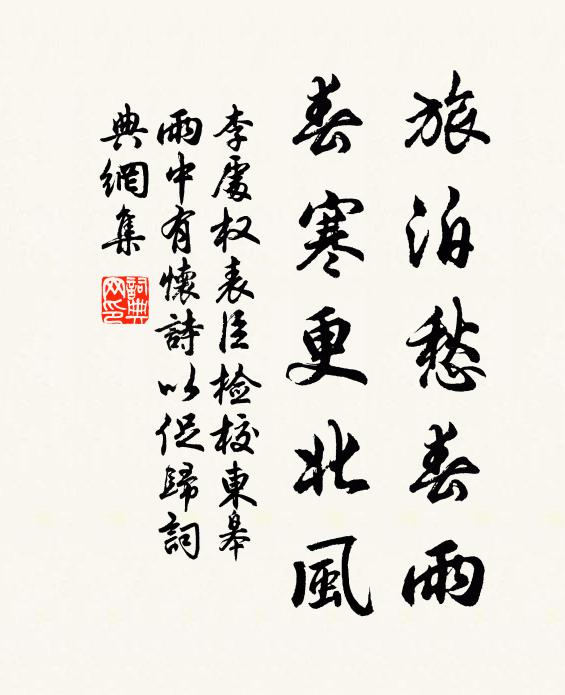 旅泊愁春雨
春寒更北風
李處权表臣检校東皋
雨中有懷詩以促歸詞
典網集
詞典网印